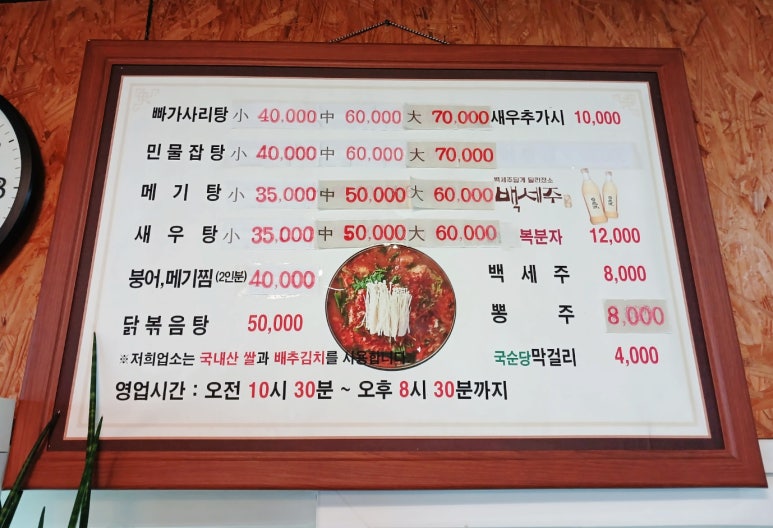 빠가사리탕 小 40,000 中 60,000 大 70,000 새우추가시 10,000
민물잡탕 小 40,000 中 60,000 大 70,000
백세주답게 달라진소
메기탕 小 35,000 中 50,000 大 60,000 백세주
새우탕 小 35,000 中 50,000 大 60,000 복분자 12,000
붕어,메기찜 (2인분) 40,000 백세주 8,000
닭볶음탕 50,000 뽕주 8,000
※저희업소는 국내산 쌀과 배추김치를 사용합니다 국순당막걸리 4,000
영업시간 : 오전 10시 30분 ~ 오후 8시 30분까지